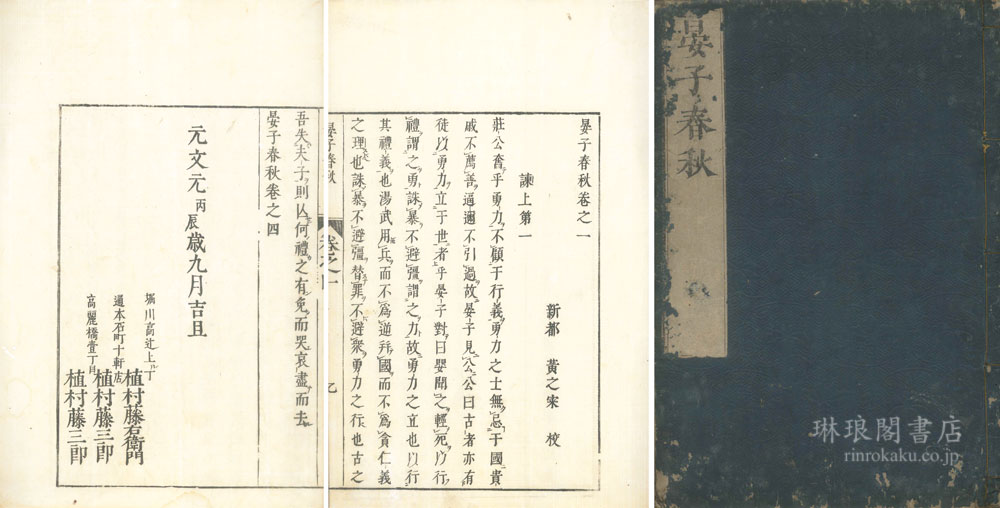 晏子春秋
晏子春秋卷之一
新都　黃之宷　校
諫上第一
莊公奮乎勇力不顧于行義勇力之士無忌于國貴
戚不薦善逼邇不引過故晏子見公公曰古者亦有
徒以勇力立于世者乎晏子對曰嬰聞之輕死以行
禮謂之勇誅暴不避彊謂之力故勇力之立也以行
其禮義也湯武用兵而不為逆并國而不為貪仁義
之理也誅暴不避彊替罪不避眾勇力之行也古之
晏子春秋
卷之一
吾失夫子則以何禮之有免而哭哀盡而去
晏子春秋卷之四
元文元丙辰歲九月吉旦
堀川高辻上ル丁
植村藤右衛門
通本石町十軒店
植村藤三郎
高麗橋壹丁目
植村藤三郎
琳琅閣書店
rinrokaku.co.jp